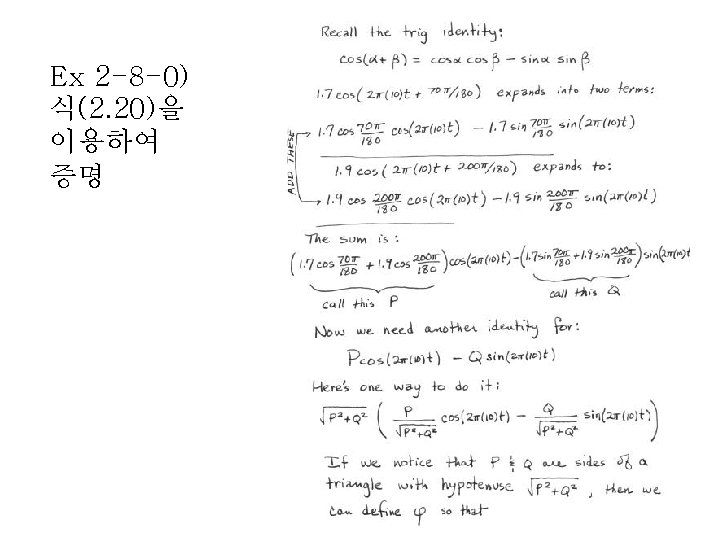 Ex 2-8-0)
식(2.20)을
이용하여
증명
Recall the trig identity:
cos(α+β) = cosα cosβ − sinα sinβ
1.7cos(2π(10)t + 70π/180) expands into two terms:
ADD THESE
1.7 cos 70π/180 cos(2π(10)t) − 1.7 sin 70π/180 sin(2π(10)t)
1.9 cos(2π(10)t + 200π/180) expands to:
1.9 cos 200π/180 cos(2π(10)t) − 1.9 sin 200π/180 sin(2π(10)t)
The sum is:
(1.7cos 70π/180 + 1.9cos 200π/180)cos(2π(10)t) − (1.7sin 70π/180 + 1.9sin 200π/180)sin(2π(10)t
call this P call this Q
Now we need another identity for:
Pcos(2π(10)t) − Q sin(2π(10)t)
Here's one way to do it:
√P²+Q² ( P/√P²+Q² cos(2π(10)t) − Q/√P²+Q² sin(2π(10)t) )
If we notice that P & Q are sides of a
triangle with hypotenuse √P²+Q², then we
can define φ so that